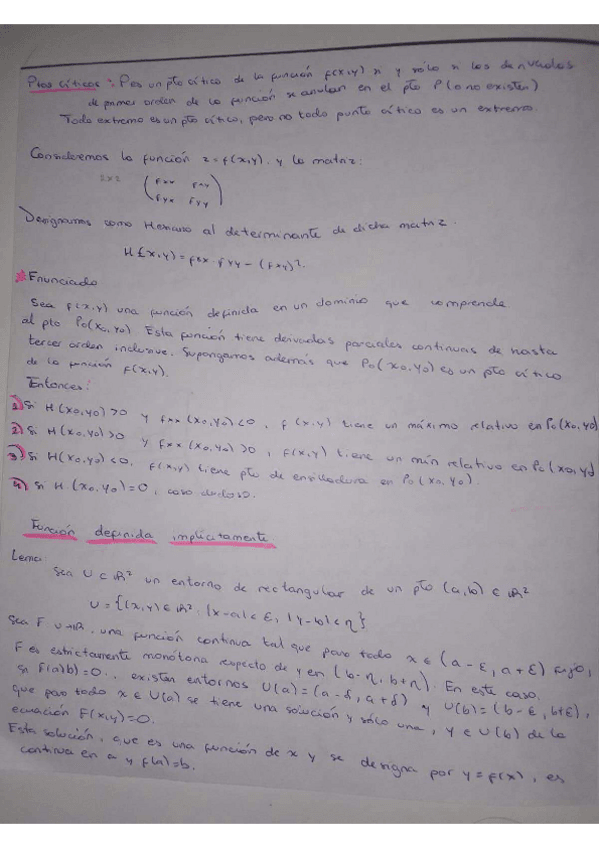 Ptos críticos: P es un pto crítico de la función f(x,y) si y sólo si las derivadas
de primer orden de la función se anulan en el pto P (o no existen)
Todo extremo es un pto crítico, pero no todo punto crítico es un extremo.
Consideremos la función z=f(x,y). y la matriz:
2x2 (fxx fxy
fyx fyy)
Designamos como Hessiano al determinante de dicha matriz.
H(x,y)=fxx·fyy-(fxy)².
*Enunciado
Sea f(x,y) una función definida en un dominio que comprende
al pto P₀(x₀,y₀). Esta función tiene derivadas parciales continuas de hasta
tercer orden inclusive. Supongamos además que P₀(x₀,y₀) es un pto crítico
de la función f(x,y).
Entonces:
1) Si H(x₀,y₀)>0 y fxx(x₀,y₀)<0, f(x,y) tiene un máximo relativo en P₀(x₀,y₀)
2) Si H(x₀,y₀)>0 y fxx(x₀,y₀)>0, f(x,y) tiene un mín relativo en P₀(x₀,y₀)
3) Si H(x₀,y₀)<0, f(x,y) tiene pto de ensilladura en P₀(x₀,y₀).
4) Si H(x₀,y₀)=0, caso dudoso.
Función definida implícitamente
Lema:
Sea U⊂ℝ² un entorno de rectangular de un pto (a,b)∈ℝ²
U={(x,y)∈ℝ²: |x-a|<ε, |y-b|<η}
Sea F U→ℝ. una función continua tal que para todo x∈(a-ε,a+ε) fijo,
F es estrictamente monótona respecto de y en (b-η,b+η). En este caso,
si F(a,b)=0.. existen entornos U(a)=(a-δ,a+δ) y U(b)=(b-ε,b+ε),
que para todo x∈U(a) se tiene una solución y sólo una, y∈U(b) de la
ecuación F(x,y)=0.
Esta solución, que es una función de x y se designa por y=f(x), es
continua en a y f(a)=b.